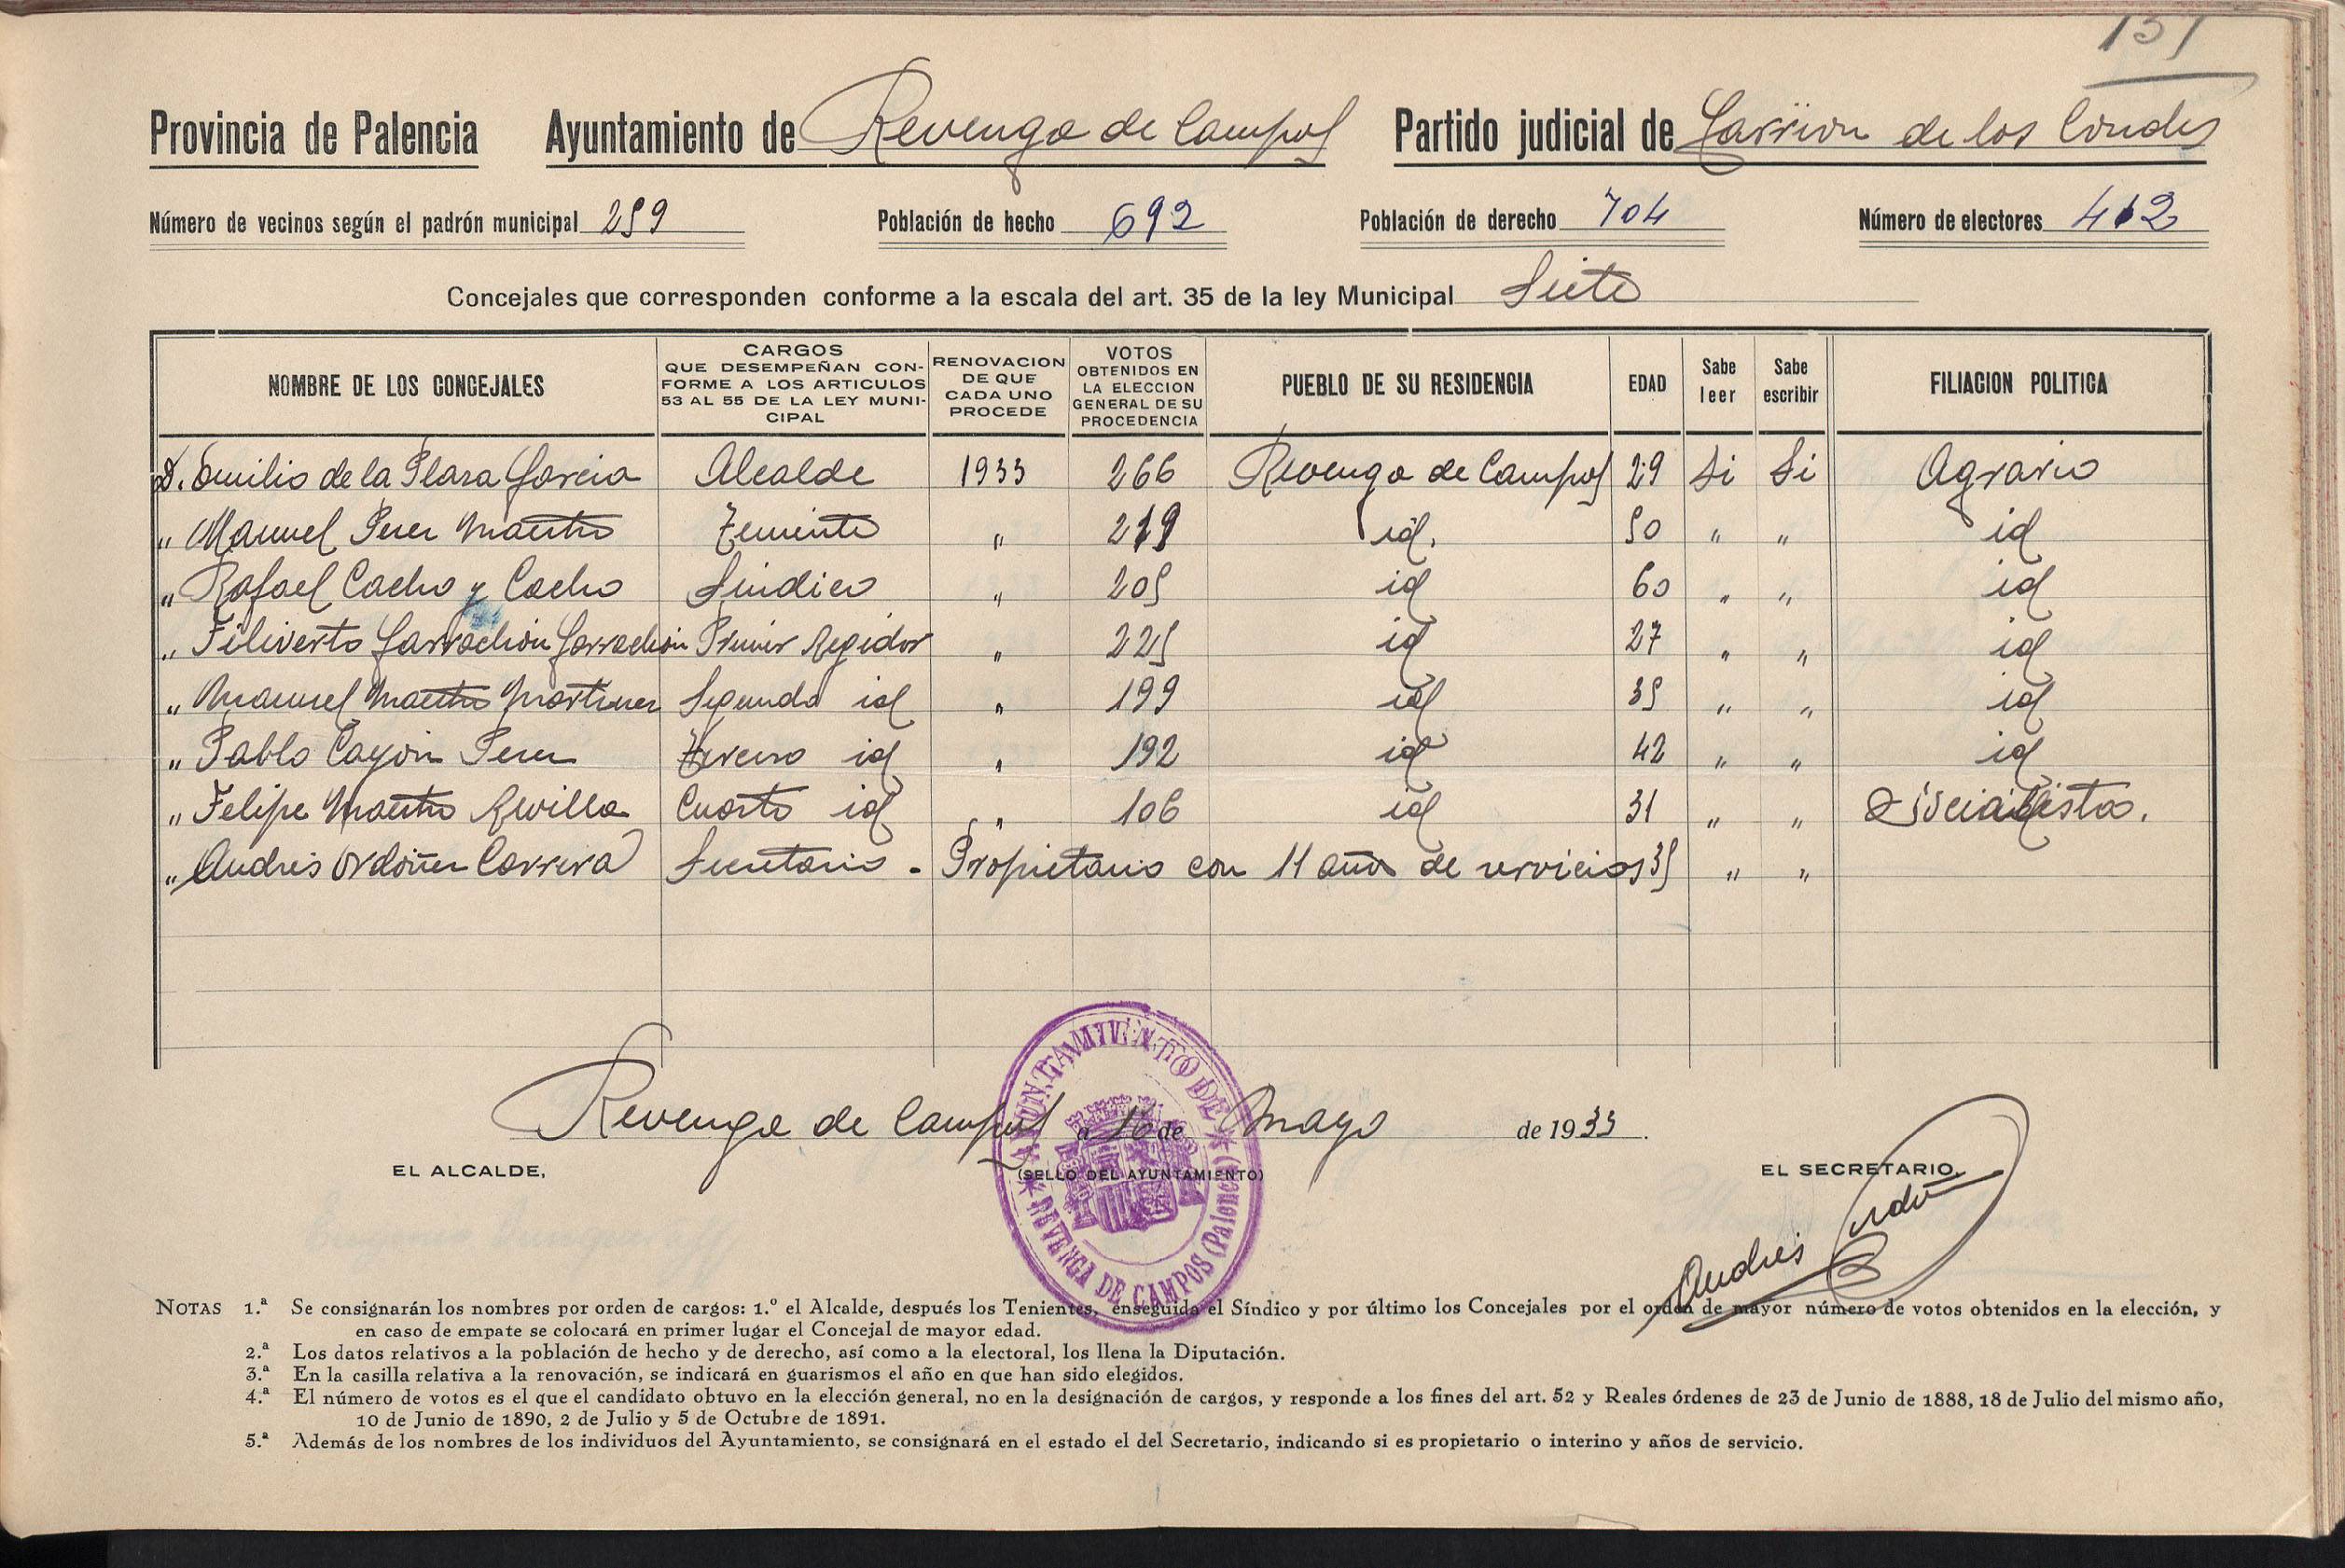 151
Provincia de Palencia Ayuntamiento de Revenga de Campos Partido judicial de Carrion de los Condes
Número de vecinos según el padrón municipal 259 Población de hecho 692 Población de derecho 704 Número de electores 412
Concejales que corresponden conforme a la escala del art. 35 de la ley Municipal Siete
NOMBRE DE LOS CONCEJALES CARGOS QUE DESEMPEÑAN CONFORME A LOS ARTICULOS 53 AL 55 DE LA LEY MUNICIPAL RENOVACION DE QUE CADA UNO PROCEDE VOTOS OBTENIDOS EN LA ELECCION GENERAL DE SU PROCEDENCIA PUEBLO DE SU RESIDENCIA EDAD Sabe leer Sabe escribir FILIACION POLITICA
D. Emilio de la Plaza Garcia Alcalde 1933 266 Revenga de Campos 29 Si Si Agrario
" Manuel Perez Maestro Teniente " 219 id. 50 " " id
" Rafael Cacho y Cacho Sindico " 205 id 60 " " id
" Filiverto Garrachón Garrachón Primer Regidor " 225 id 27 " " id
" Manuel Maestro Martinez Segundo id " 199 id 35 " " id
" Pablo Cayón Perez Tercero id " 192 id 42 " " id
" Felipe Maestro Revilla Cuarto id " 106 id 31 " " Socialista.
" Andrés Ordóñez Carrera Secretario - Propietario con 11 años de servicios 35 " "
Revenga de Campos a 16 de Mayo de 1933.
EL ALCALDE, (SELLO DEL AYUNTAMIENTO) EL SECRETARIO,
AYUNTAMIENTO DE REVENGA DE CAMPOS (Palencia)
Andrés Ordóñ
NOTAS 1.ª Se consignarán los nombres por orden de cargos: 1.º el Alcalde, después los Tenientes, enseguida el Síndico y por último los Concejales por el orden de mayor número de votos obtenidos en la elección, y
en caso de empate se colocará en primer lugar el Concejal de mayor edad.
2.ª Los datos relativos a la población de hecho y de derecho, así como a la electoral, los llena la Diputación.
3.ª En la casilla relativa a la renovación, se indicará en guarismos el año en que han sido elegidos.
4.ª El número de votos es el que el candidato obtuvo en la elección general, no en la designación de cargos, y responde a los fines del art. 52 y Reales órdenes de 23 de Junio de 1888, 18 de Julio del mismo año,
10 de Junio de 1890, 2 de Julio y 5 de Octubre de 1891.
5.ª Además de los nombres de los individuos del Ayuntamiento, se consignará en el estado el del Secretario, indicando si es propietario o interino y años de servicio.